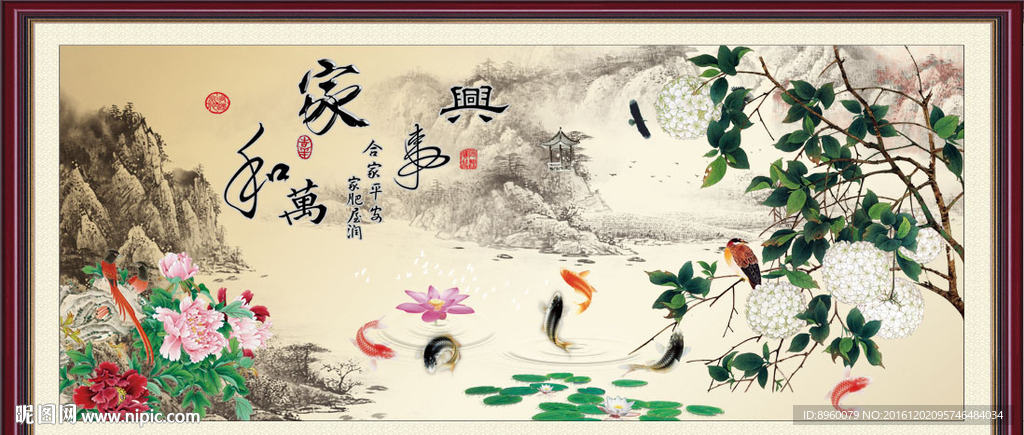 家和萬事興
合家平安
家肥屋润
昵图网 www.nipic.com
ID:8960079 NO:20161202095746484034